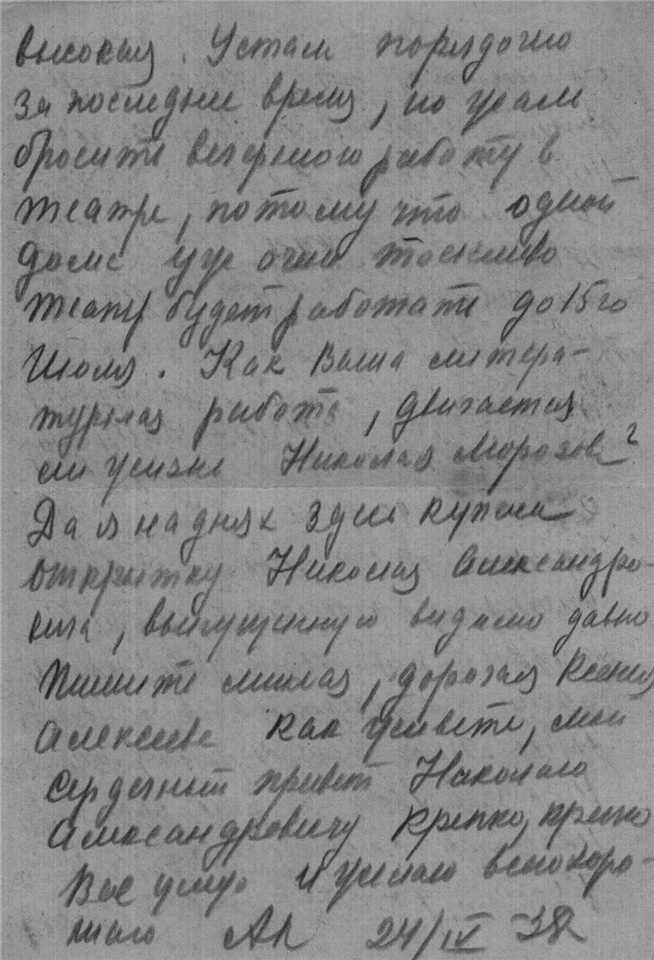 высокая. Устала порядочно
за последнее время, но жаль
бросить вечернюю работу в
театре, потому что одной
дома уж очень тоскливо
Театр будет работать до 15го
Июля. Как Ваша литера-
турная работа, двигается
ли жизнь Николая Морозова?
Да я на днях здесь купила
открытку Николая Александро-
вича, выпущенную видимо давно
Пишите милая, дорогая Ксения
Алексеевна как живете, мой
сердечный привет Николаю
Александровичу Крепко, крепко
Вас жму и желаю всего хоро-
шего АЛ 24/IV-38